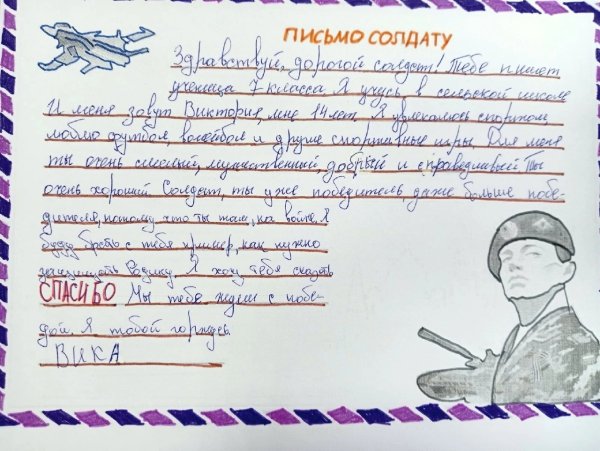 ПИСЬМО СОЛДАТУ
Здравствуй, дорогой солдат! Тебе пишет
ученица 7 класса. Я учусь в сельской школе
И меня зовут Виктория, мне 14 лет. Я увлекаюсь спортом,
люблю футбол, волейбол и другие спортивные игры. Для меня
ты очень смелый, мужественный, добрый и справедливый. Ты
очень хороший Солдат, ты уже победитель, даже больше побе-
дителя, потому, что ты там, на войне. Я
буду брать с тебя пример, как нужно
защищать Родину. Я хочу тебе сказать
СПАСИБО Мы тебе ждем с побе-
дой. Я тобой горжусь.
ВИКА